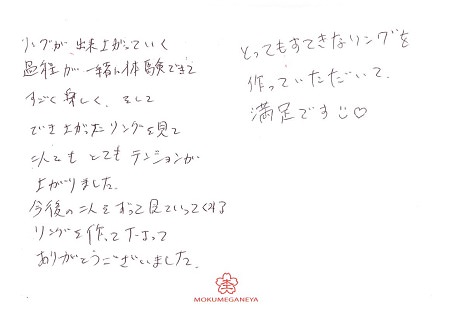 リングが出来上がっていく
過程が一緒に体験できて
すごく楽しく、そして
でき上がったリングを見て
二人でも とても テンションが
上がりました。
今後の二人をずっと見ていってくれる
リングを作って下さって
ありがとうございました。
とってもすてきなリングを
作っていただいて、
満足です♡
MOKUMEGANEYA